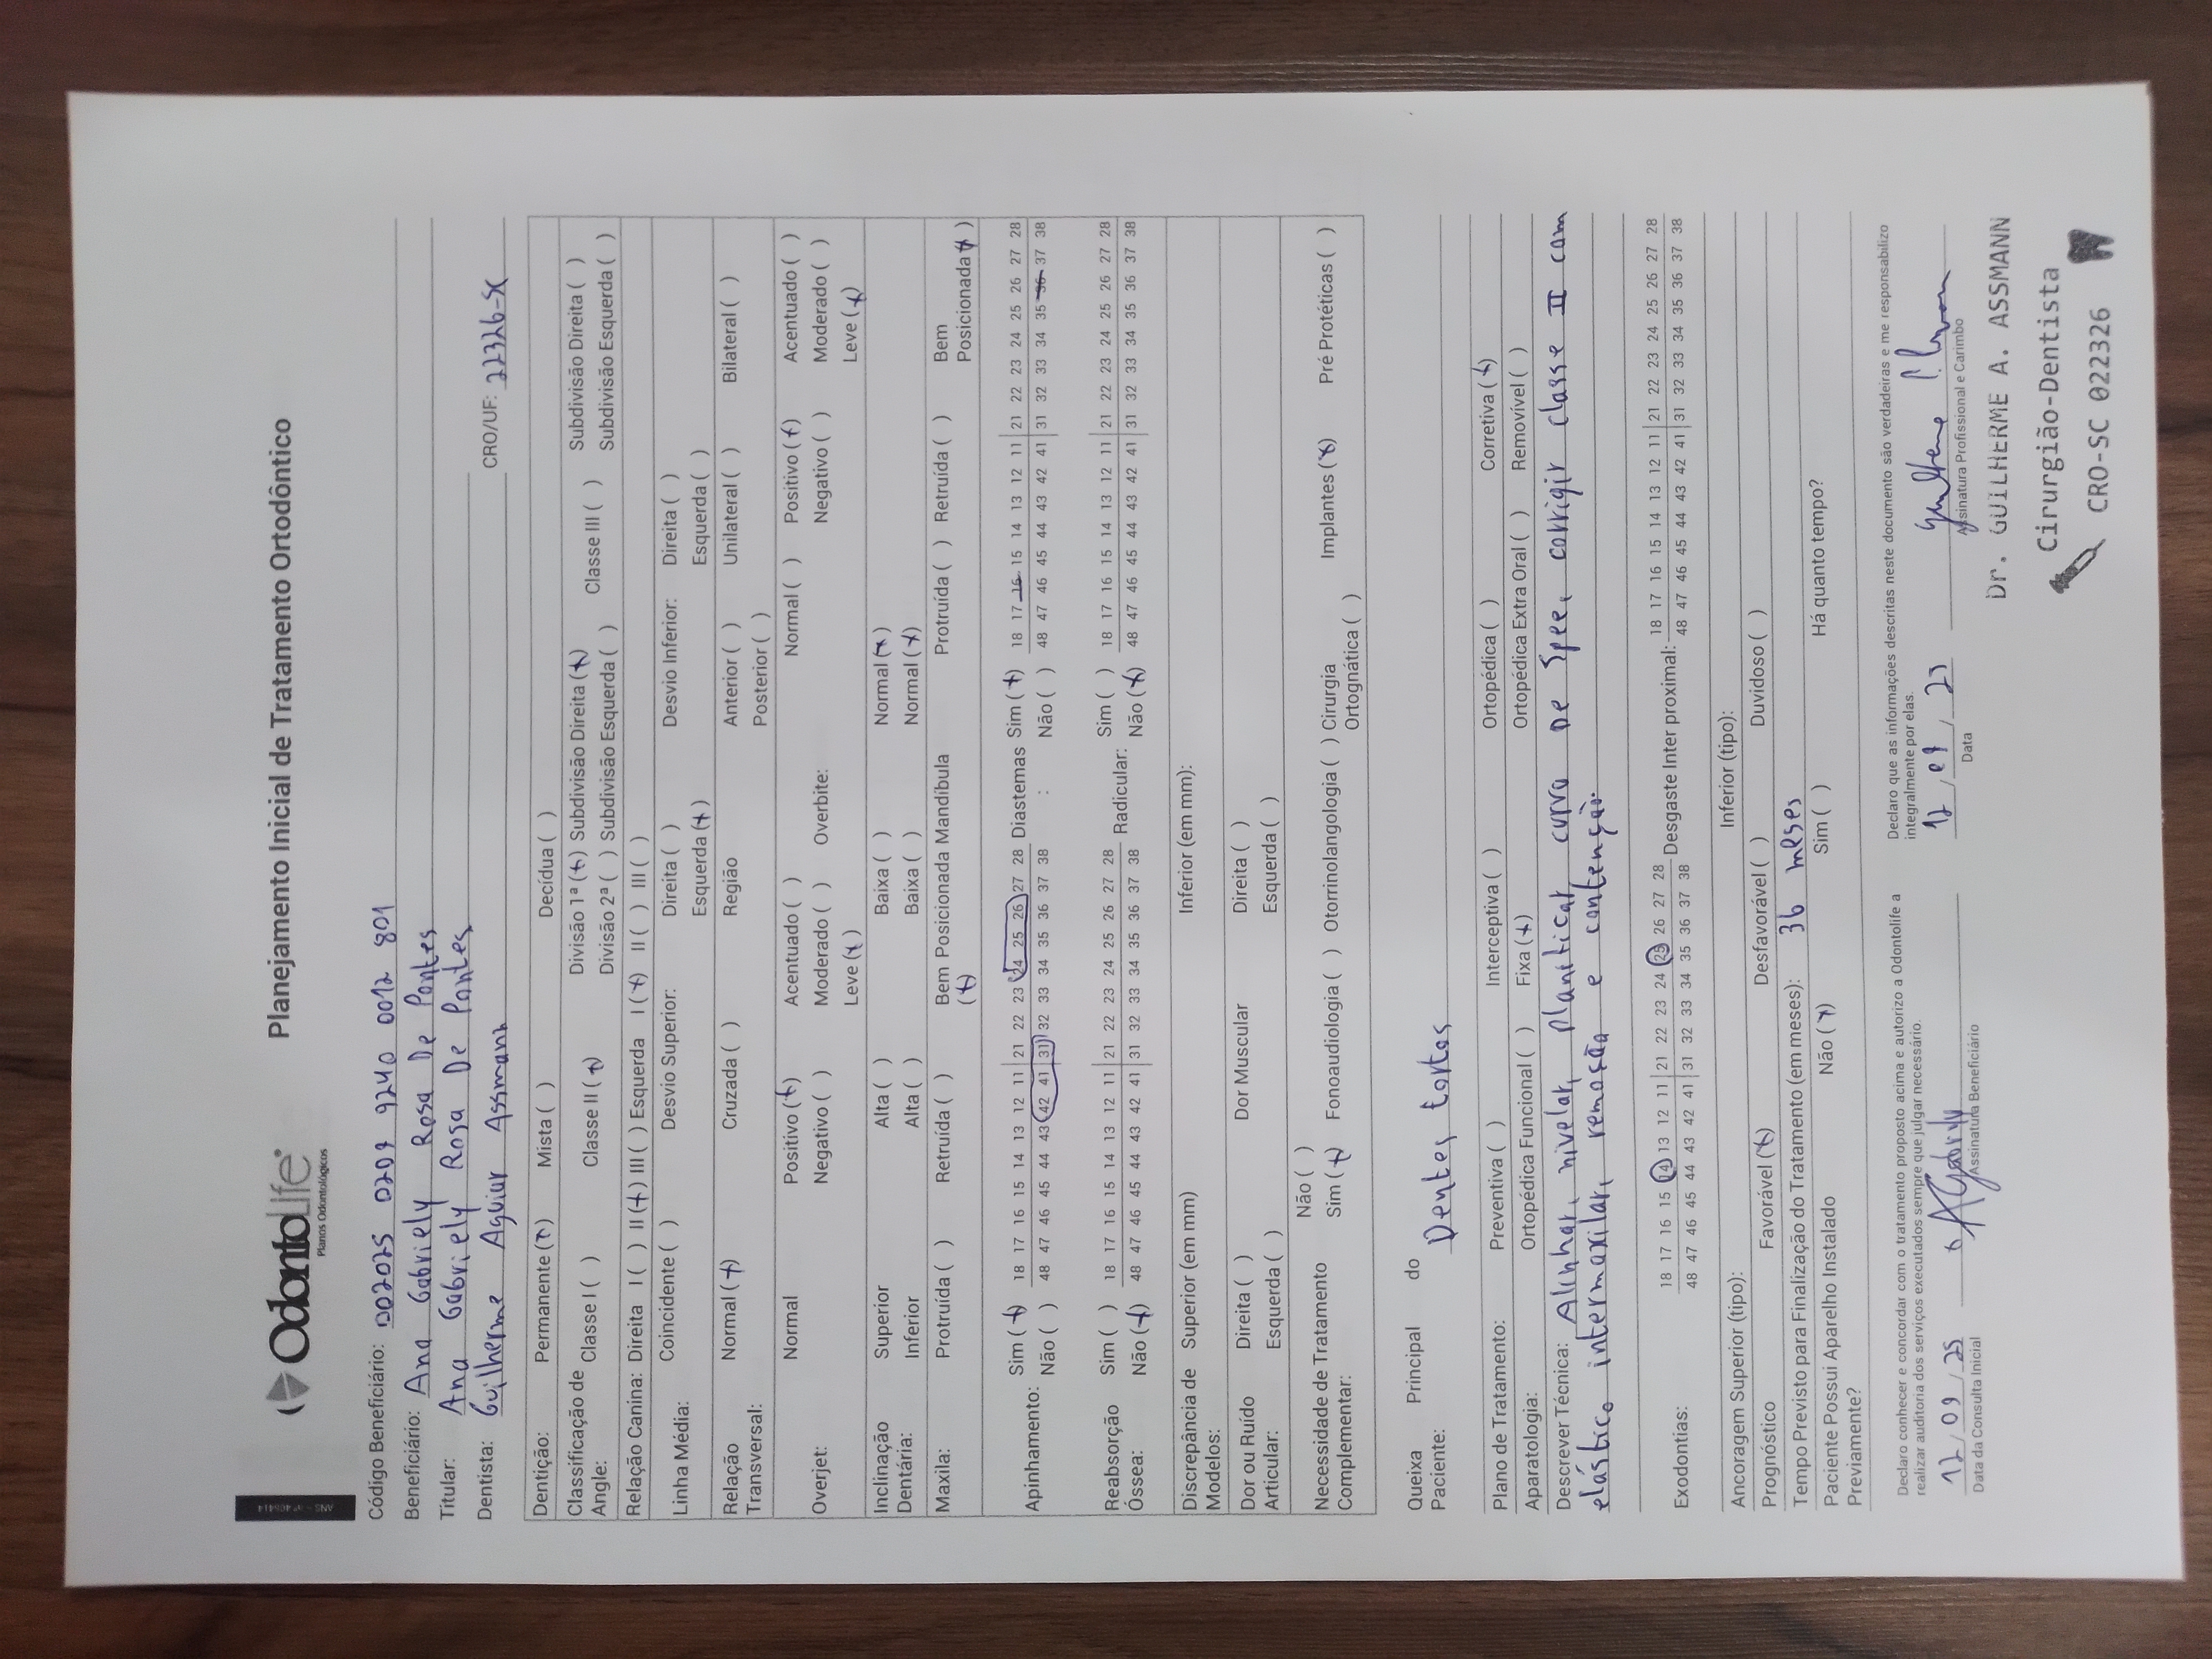 ANS - nº 406414
OdontoLife
Planos Odontológicos
Planejamento Inicial de Tratamento Ortodôntico
Código Beneficiário: 002025 0207 9240 0012 801
Beneficiário: Ana Gabriely Rosa De Pontes
Titular: Ana Gabriely Rosa De Pontes
Dentista: Guilherme Aguiar Assmann CRO/UF: 22326-SC
Dentição: Permanente (x) Mista ( ) Decídua ( )
Classificação de Angle: Classe I ( ) Classe II (x) Divisão 1ª (x) Subdivisão Direita (x) Classe III ( ) Subdivisão Direita ( )
Divisão 2ª ( ) Subdivisão Esquerda ( ) Subdivisão Esquerda ( )
Relação Canina: Direita I ( ) II (x) III ( ) Esquerda I (x) II ( ) III ( )
Linha Média: Coincidente ( ) Desvio Superior: Direita ( ) Desvio Inferior: Direita ( )
Esquerda (x) Esquerda ( )
Relação Transversal: Normal (x) Cruzada ( ) Região Anterior ( ) Unilateral ( ) Bilateral ( )
Posterior ( )
Overjet: Normal Positivo (x) Acentuado ( ) Overbite: Normal ( ) Positivo (x) Acentuado ( )
Negativo ( ) Moderado ( ) Negativo ( ) Moderado ( )
Leve (x) Leve (x)
Inclinação Dentária: Superior Alta ( ) Baixa ( ) Normal (x)
Inferior Alta ( ) Baixa ( ) Normal (x)
Maxila: Protruída ( ) Retruída ( ) Bem Posicionada (x) Mandíbula Protruída ( ) Retruída ( ) Bem Posicionada (x)
Apinhamento: Sim (x) 18 17 16 15 14 13 12 11 21 22 23 24 25 26 27 28 Diastemas Sim (x) 18 17 16 15 14 13 12 11 21 22 23 24 25 26 27 28
Não ( ) 48 47 46 45 44 43 42 41 31 32 33 34 35 36 37 38 : Não ( ) 48 47 46 45 44 43 42 41 31 32 33 34 35 36 37 38
Reabsorção Óssea: Sim ( ) 18 17 16 15 14 13 12 11 21 22 23 24 25 26 27 28 Radicular: Sim ( ) 18 17 16 15 14 13 12 11 21 22 23 24 25 26 27 28
Não (x) 48 47 46 45 44 43 42 41 31 32 33 34 35 36 37 38 Não (x) 48 47 46 45 44 43 42 41 31 32 33 34 35 36 37 38
Discrepância de Modelos: Superior (em mm) Inferior (em mm):
Dor ou Ruído Articular: Direita ( ) Dor Muscular Direita ( )
Esquerda ( ) Esquerda ( )
Necessidade de Tratamento Complementar: Não ( )
Sim (x) Fonoaudiologia ( ) Otorrinolangologia ( ) Cirurgia Ortognática ( ) Implantes (x) Pré Protéticas ( )
Queixa Principal do Paciente: Dentes tortos
Plano de Tratamento: Preventiva ( ) Interceptiva ( ) Ortopédica ( ) Corretiva (x)
Aparatologia: Ortopédica Funcional ( ) Fixa (x) Ortopédica Extra Oral ( ) Removível ( )
Descrever Técnica: Alinhar, nivelar, planificar curva De Spee, corrigir classe II com
elástico intermaxilar, remoção e contenção.
Exodontias: 18 17 16 15 14 13 12 11 21 22 23 24 25 26 27 28 Desgaste Inter proximal: 18 17 16 15 14 13 12 11 21 22 23 24 25 26 27 28
48 47 46 45 44 43 42 41 31 32 33 34 35 36 37 38 48 47 46 45 44 43 42 41 31 32 33 34 35 36 37 38
Ancoragem Superior (tipo): Inferior (tipo):
Prognóstico Favorável (x) Desfavorável ( ) Duvidoso ( )
Tempo Previsto para Finalização do Tratamento (em meses): 36 meses
Paciente Possui Aparelho Instalado Previamente? Não (x) Sim ( ) Há quanto tempo?
Declaro conhecer e concordar com o tratamento proposto acima e autorizo a Odontolife a
realizar auditoria dos serviços executados sempre que julgar necessário.
Declaro que as informações descritas neste documento são verdadeiras e me responsabilizo
integralmente por elas.
12/09/25
Data da Consulta Inicial
Assinatura Beneficiário
Data
Assinatura Profissional e Carimbo
Dr. GUILHERME A. ASSMANN
Cirurgião-Dentista
CRO-SC 022326